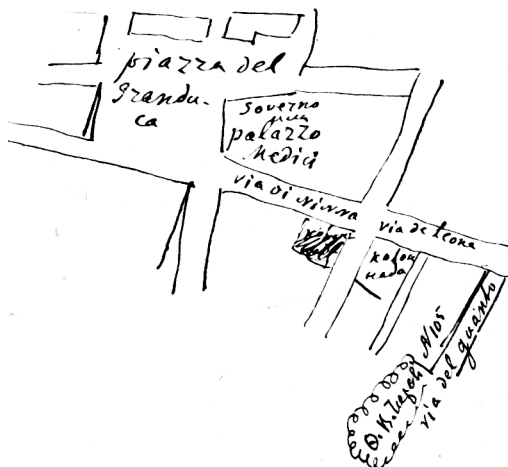 piazza del
Grandu-
ca
Governo
palazzo
Medici
via di Ninna
via de Leona
колон
нада
N 105
via del guanto